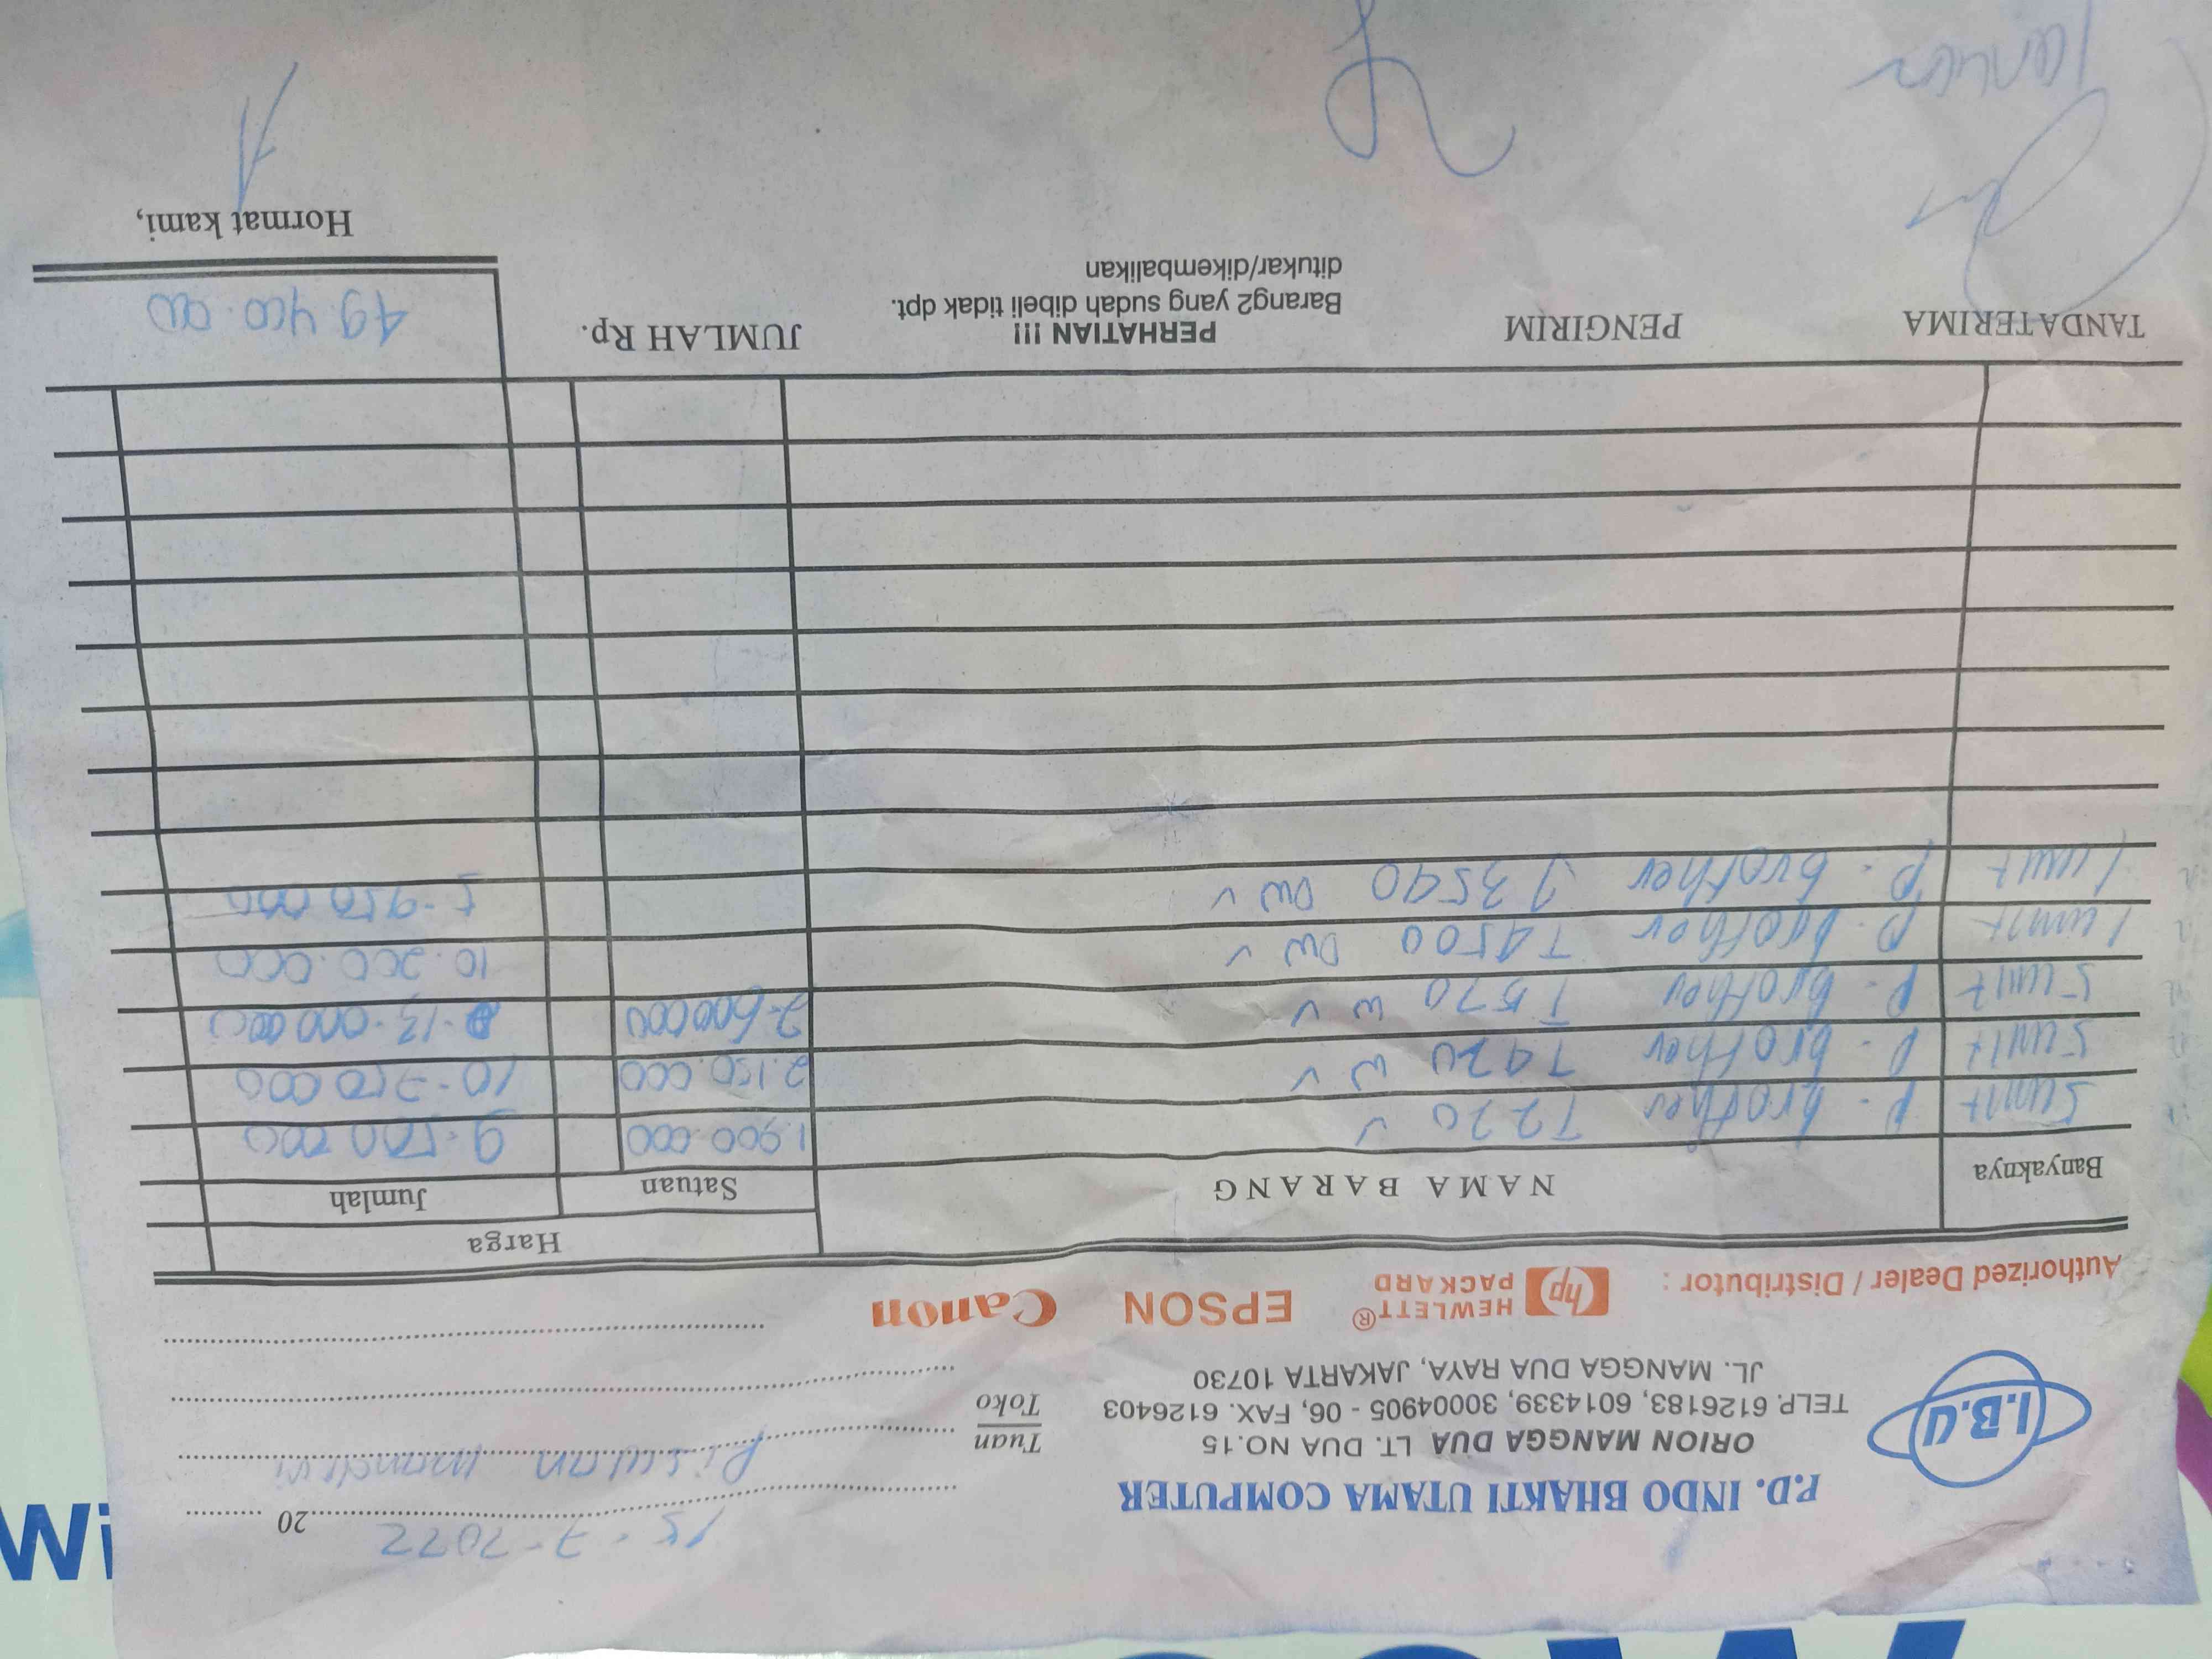 I.B.U
P.D. INDO BHAKTI UTAMA COMPUTER
ORION MANGGA DUA LT. DUA NO.15
TELP. 6126183, 6014339, 30004905 - 06, FAX. 6126403
JL. MANGGA DUA RAYA, JAKARTA 10730
15 - 7 - 2022 20
Tuan
Toko
mandiri
Authorized Dealer / Distributor : hp HEWLETT® PACKARD EPSON Canon
Banyaknya NAMA BARANG Harga
Satuan Jumlah
5 unit p. brother T220 v 1.900.000 9.500.000
5 unit p. brother T420 W v 2.150.000 10.750.000
5 unit p. brother T520 W v 2.600.000 13.000.000
1 unit p. brother T4500 DW v 10.200.000
1 unit p. brother J3540 DW v 5.950.000
TANDATERIMA PENGIRIM PERHATIAN !!! JUMLAH Rp. 49.400.000
Barang2 yang sudah dibeli tidak dpt.
ditukar/dikembalikan
Hormat kami,
Wi